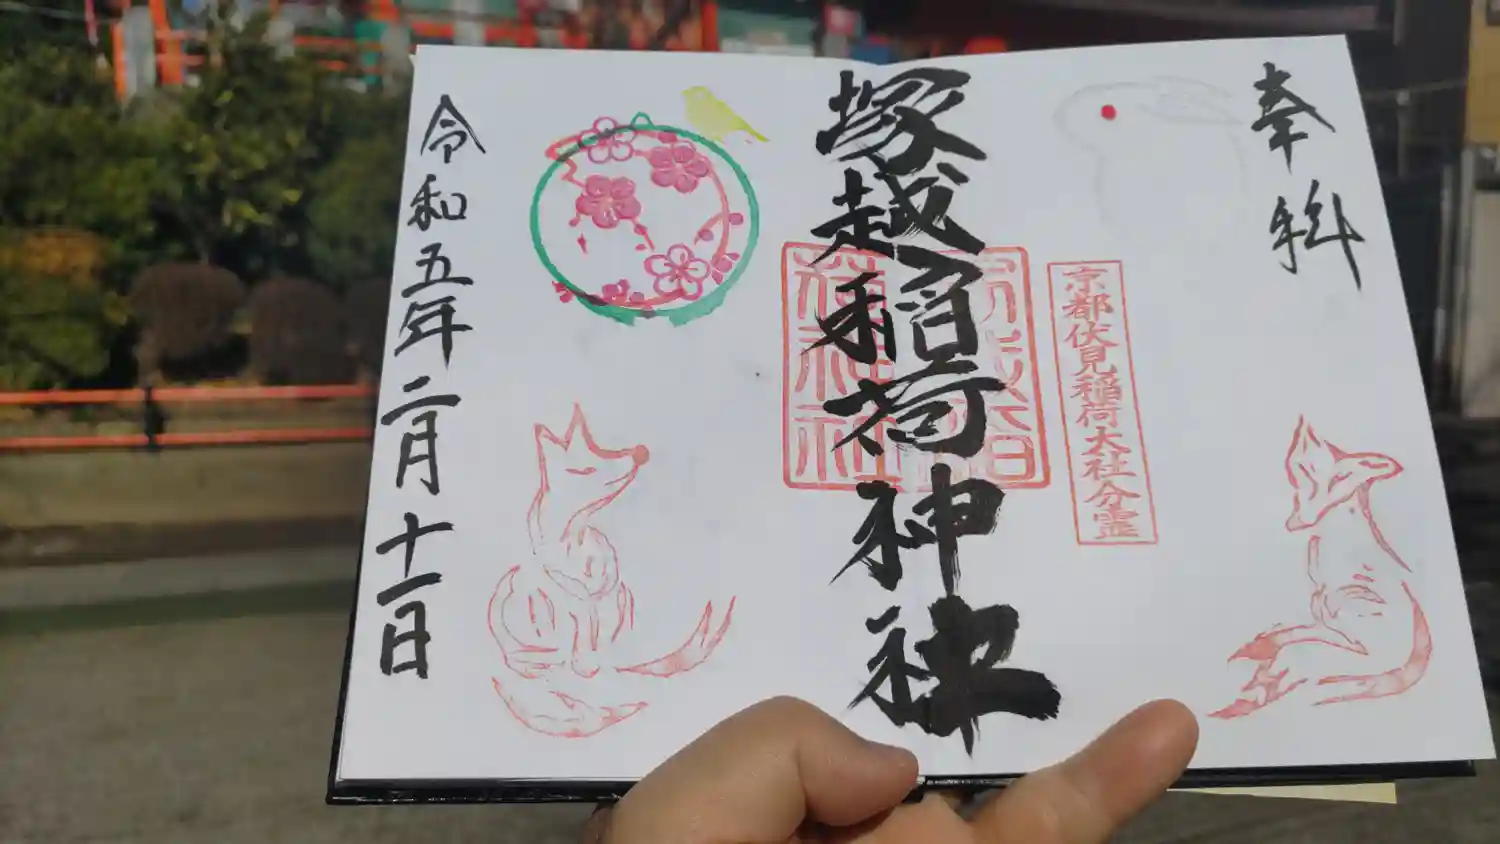 奉拝
京都伏見稲荷大社分霊
塚越稲荷神社
令和五年二月十一日